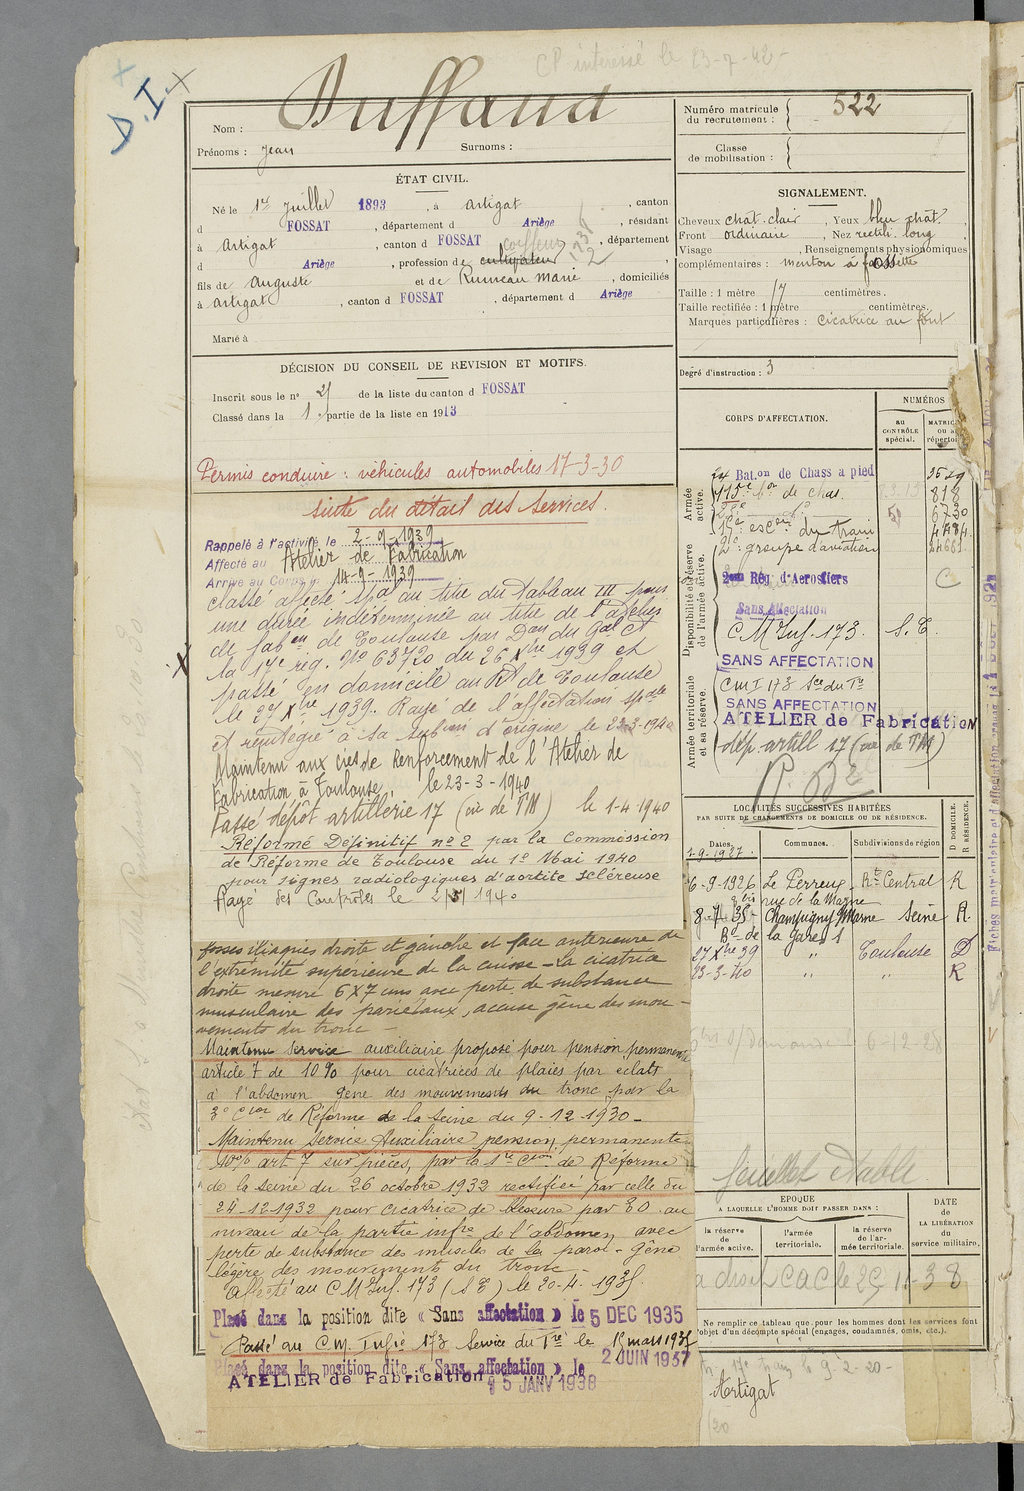 CP intéressé le 23-7-42-
D.I
Nom : Duffaud
Prénoms : Jean Surnoms :
ÉTAT CIVIL.
Né le 1er Juillet 1893, à Artigat, canton
d FOSSAT, département d Ariège, résidant
à Artigat, canton d FOSSAT, département
d Ariège, profession de cultivateur coiffeur 1938
fils de Auguste et de Rumeau Marie, domiciliés
à Artigat, canton d FOSSAT, département d Ariège
Marié à
DÉCISION DU CONSEIL DE REVISION ET MOTIFS.
Inscrit sous le n° 21 de la liste du canton d FOSSAT
Classé dans la 1 partie de la liste en 1913
Permis conduire : véhicules automobiles 17-3-30
suite du détail des services.
Rappelé à l'activité le 2-9-1939
Affecté au Atelier de Fabrication
Arrivé au Corps le 14-9-1939
classé affecté spal au titre du tableau III pour
une durée indéterminée au titre de l'atelier
de fabon de Toulouse par Don du Gal Ct
la 17e rég. N° 63720 du 26 Xbre 1939 et
passé en domicile au Rt de Toulouse
le 27 Xbre 1939. Rayé de l'affectation spale
et réintégré à sa subon d'origine le 23-3-1940
Maintenu aux cies de Renforcement de l'Atelier de
Fabrication à Toulouse, le 23-3-1940
Passé dépôt artillerie 17 (vie de TM) le 1-4-1940
Réformé Définitif n° 2 par la Commission
de Réforme de Toulouse du 1° Mai 1940
pour signes radiologiques d'aortite scléreuse
Rayé des Contrôles le 2/5/1940
fosses iliaques droite et gauche et face antérieure de
l'extrémité supérieure de la cuisse - La cicatrice
droite mesure 6x7 cms avec perte de substance
musculaire des pariétaux, accuse gêne des mou-
vements du tronc -
Maintenu service auxiliaire proposé pour pension permanente
article 7 de 10% pour cicatrices de plaies par éclats
à l'abdomen gêne des mouvements du tronc par la
3° Cion de Réforme de la Seine du 9-12-1930-
Maintenu Service Auxiliaire pension permanente
10% art. 7 sur pièces, par la 1re Cion de Réforme
de la Seine du 26 octobre 1932 rectifiée par celle du
24-12-1932 pour cicatrice de blessure par EO au
niveau de la partie infre de l'abdomen avec
perte de substance des muscles de la paroi - Gêne
légère des mouvements du tronc -
affecté au C M Inf. 173 (S E) le 20-4-1935.
Placé dans la position dite « Sans affectation » le 5 DEC 1935
Passé au C.M. Infie 173 Service du Tre le 15 mars 1937
Placé dans la position dite « Sans affectation » le 2 JUIN 1937
ATELIER de Fabrication 15 JANV 1938
Numéro matricule du recrutement : 522
Classe de mobilisation :
SIGNALEMENT.
Cheveux chat. clair, Yeux bleu chât.
Front ordinaire, Nez rectili. long
Visage , Renseignements physionomiques
complémentaires : menton à fossette
Taille : 1 mètre 7 centimètres.
Taille rectifiée : 1 mètre centimètres.
Marques particulières : cicatrice au font
Degré d'instruction : 3
CORPS D'AFFECTATION.
NUMÉROS
au CONTRÔLE spécial.
Armée active.
Bat.on de Chass a pied 3529
115e bon de chas. 818
6730
escon du train 4484
2e groupe d'aviation 24661
Disponibilité et réserve de l'armée active.
Rég. d'Aerostiers
Sans Affectation
C M Inf. 173. S. E.
SANS AFFECTATION
Armée territoriale et sa réserve.
CMI 173 Sce du Tre
SANS AFFECTATION
ATELIER de Fabrication
dép. artill 17 (vie de TM)
LOCALITÉS SUCCESSIVES HABITÉES
PAR SUITE DE CHANGEMENTS DE DOMICILE OU DE RÉSIDENCE.
Dates. Communes. Subdivisions de région D DOMICILE. R RÉSIDENCE.
1-9-1927.
6-9-1926 Le Perreux Rt Central R
9 bis rue de la Marne
8-7-35- Champigny s/Marne Seine R.
Bd de la gare 1
27 Xbre 39 " Toulouse D
23-3-40 " " R
6-12-28
feuillet établi
EPOQUE
A LAQUELLE L'HOMME DOIT PASSER DANS :
la réserve de l'armée active.
l'armée territoriale.
la réserve de l'armée territoriale.
DATE DE LA LIBÉRATION du service militaire.
a droit CAC le 25 11-38
Ne remplir ce tableau que pour les hommes dont les services font
l'objet d'un décompte spécial (engagés, condamnés, omis, etc.).
Artigat